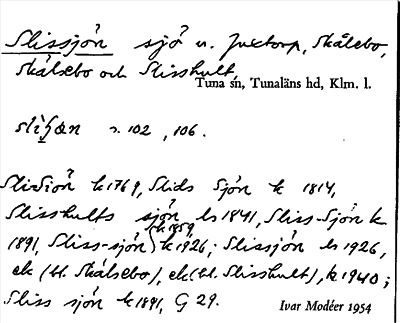 Slissjön sjö n. Juxtorp, Skälsebo,
Skälsebo och Slisshult,
Tuna sn, Tunaläns hd, Klm. l.
s. 102, 106.
k 1769, Slids Sjön k 1814,
Slisshults sjön ls 1841, Sliss-Sjön k
1891, Sliss-sjön (k 1859, k 1926; Slissjön ls 1926,
ek (bl. Skälsebo), ek (bl. Slisshult), k 1940;
Sliss sjön k 1891, G 29.
Ivar Modéer 1954